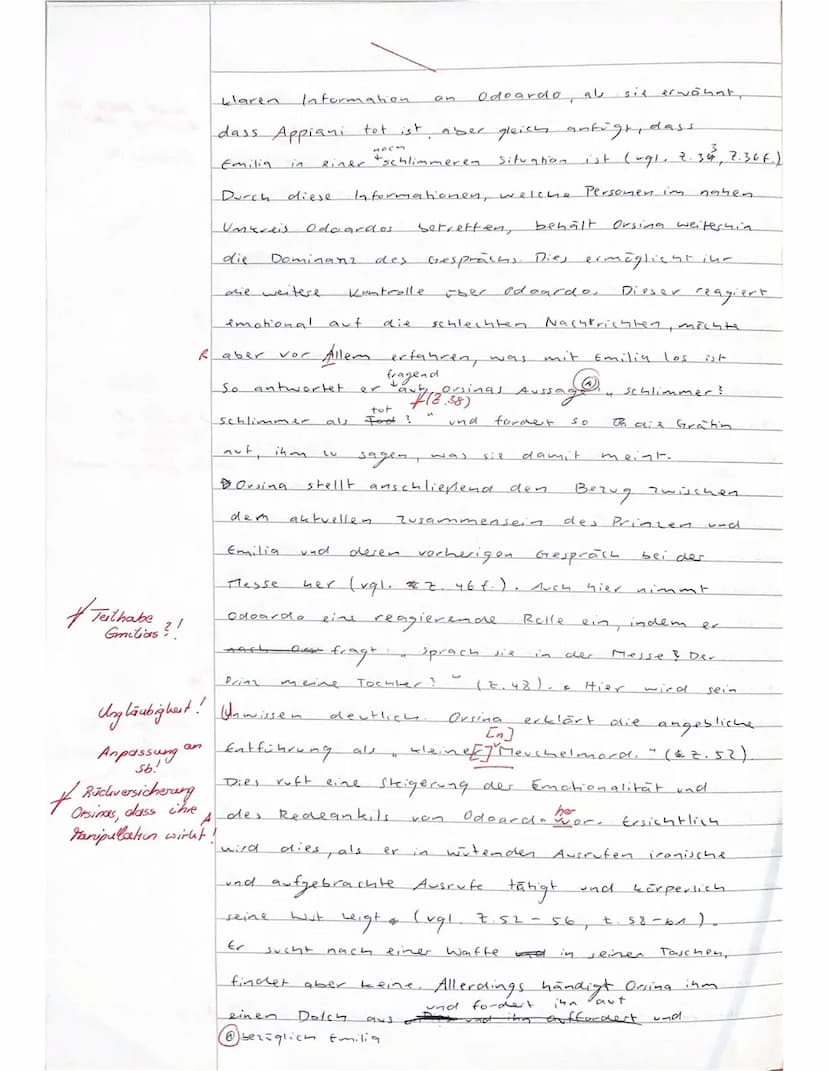 klaren Information an Odoardo, als sie erwähnt,
dass Appiani tot ist, aber gleich anfügt, dass
noch
Emilia in einer schlimmeren Situation ist (vgl. Z. 34, Z. 36 f.)
3
Durch diese Informationen, welche Personen im nahen
Umkreis Odoardos betreffen, behält Orsina weiterhin
die Dominanz des Gesprächs. Dies ermöglicht ihr
die weitere Kontrolle über Odoardo. Dieser reagiert
emotional auf die schlechten Nachrichten, möchte
R aber vor Allem erfahren, was mit Emilia los ist
fragend
So antwortet er auf Orsinas Aussage „ schlimmer?
(Z. 38)
tot
schlimmer als Tod? " und fordert so die Gräfin
auf, ihm zu sagen, was sie damit meint.
Orsina stellt anschließend den Bezug zwischen
dem aktuellen Zusammensein des Prinzen und
Emilia und deren vorherigen Gespräch bei der
Messe her (vgl. Z. 46 f.). Auch hier nimmt
Teilhabe
Emilias?!
Odoardo eine reagierende Rolle ein, indem er
nach fragt: „ Sprach sie in der Messe? Der
Prinz meine Tochter? " (Z. 48). Hier wird sein
Ungläubigkeit!
Unwissen deutlich. Orsina erklärt die angebliche
[n]
Anpassung an
sb!
Entführung als „ kleine[] Meuchelmord. " (Z. 52).
Rückversicherung
Orsinas, dass ihre
Manipulation wirkt!
Dies ruft eine Steigerung der Emotionalität und
her
A des Redeankils von Odoardo vor. Ersichtlich
wird dies, als er in wütenden Ausrufen ironische
und aufgebrachte Ausrufe tätigt und körperlich
seine Wut zeigt (vgl. Z. 52 - 56, Z. 58 - 61).
Er sucht nach einer Waffe und in seinen Taschen,
findet aber keine. Allerdings händigt Orsina ihm
und fordert ihn auf
einen Dolch aus und ihn auffordert und
bezüglich Emilia